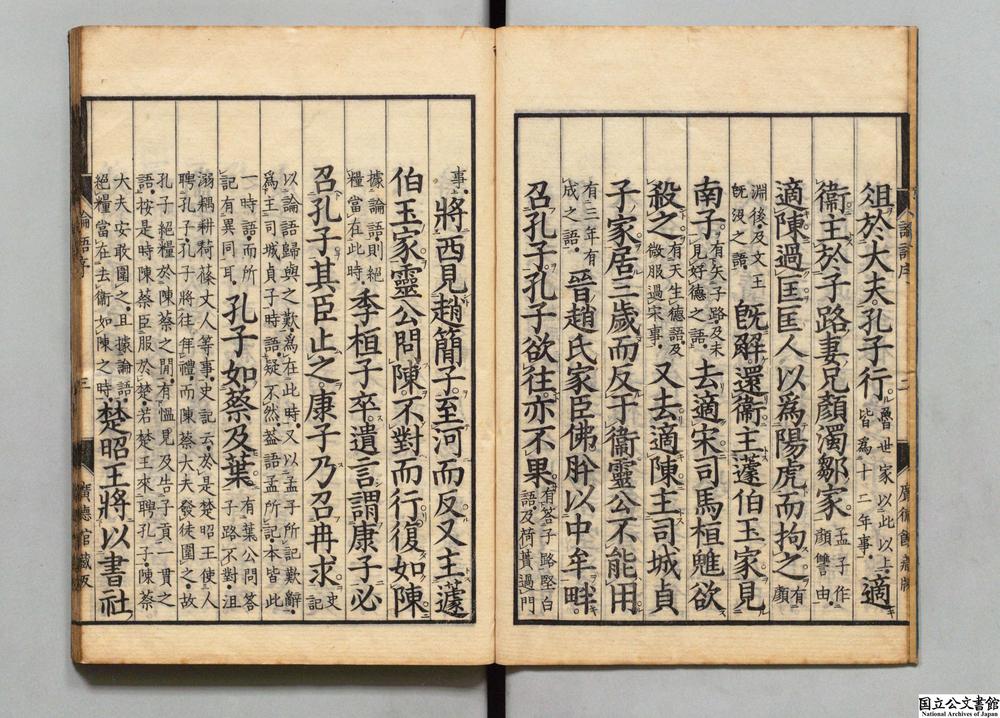 俎於大夫孔子行魯世家以此以上皆爲十二年事適
衞主於子路妻兄顏濁鄒家孟子作顏讐由
適陳過匡匡人以爲陽虎而拘之有顏
淵後及文王旣沒之語旣解還衞主蘧伯玉家見
南子有矢子路及未見好德之語去適宋司馬桓魋欲
殺之有天生德語及微服過宋事又去適陳主司城貞
子家居三歲而反于衞靈公不能用
有三年有成之語晉趙氏家臣佛肸以中牟畔
召孔子孔子欲往亦不果有荅子路堅白語及荷蕢過門
事將西見趙簡子至河而反又主蘧
伯玉家靈公問陳不對而行復如陳
據論語則絕糧當在此時季桓子卒遺言謂康子必
召孔子其臣止之康子乃召冉求史記
以論語歸與之歎爲在此時又以孟子所記歎辭爲主司城貞子時語疑不然葢語孟所記本皆此
一時語而所記有異同耳孔子如蔡及葉有葉公問答子路不對沮
溺耦耕荷蓧丈人等事史記云於是楚昭王使人聘孔子孔子將往拜禮而陳蔡大夫發徒圍之故
孔子絕糧於陳蔡之閒有慍見及告子貢一貫之語按是時陳蔡臣服於楚若楚王來聘孔子陳蔡
大夫安敢圍之且據論語絕糧當在去衞如陳之時楚昭王將以書社
論語序
三
廣德館藏版
二
国立公文書館
National Archives of Japan